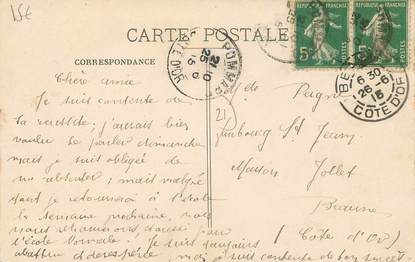 15€
CARTE POSTALE
CORRESPONDANCE
RÉPUBLIQUE FRANÇAISE
RÉPUBLIQUE FRANÇAISE
5c
POSTES
POMMARD
21-10
25-6
15
CÔTE-D'OR
BEAUNE
6 30
26-6
15
CÔTE D'OR
Chère amie
Je suis contente de
ta réussite; j'aurais bien
voulu te parler dimanche
mais je suis obligée de
m'absenter; mais malgré
tout je retournerai à l'école
la semaine prochaine,
nous retournerons aussi pour
l'école Normale. Je suis
abattue, désespérée, moi je suis contente de ton succès
21
Faubourg St Jean
Maison Jollet
Beaune
(Côte d'Or)